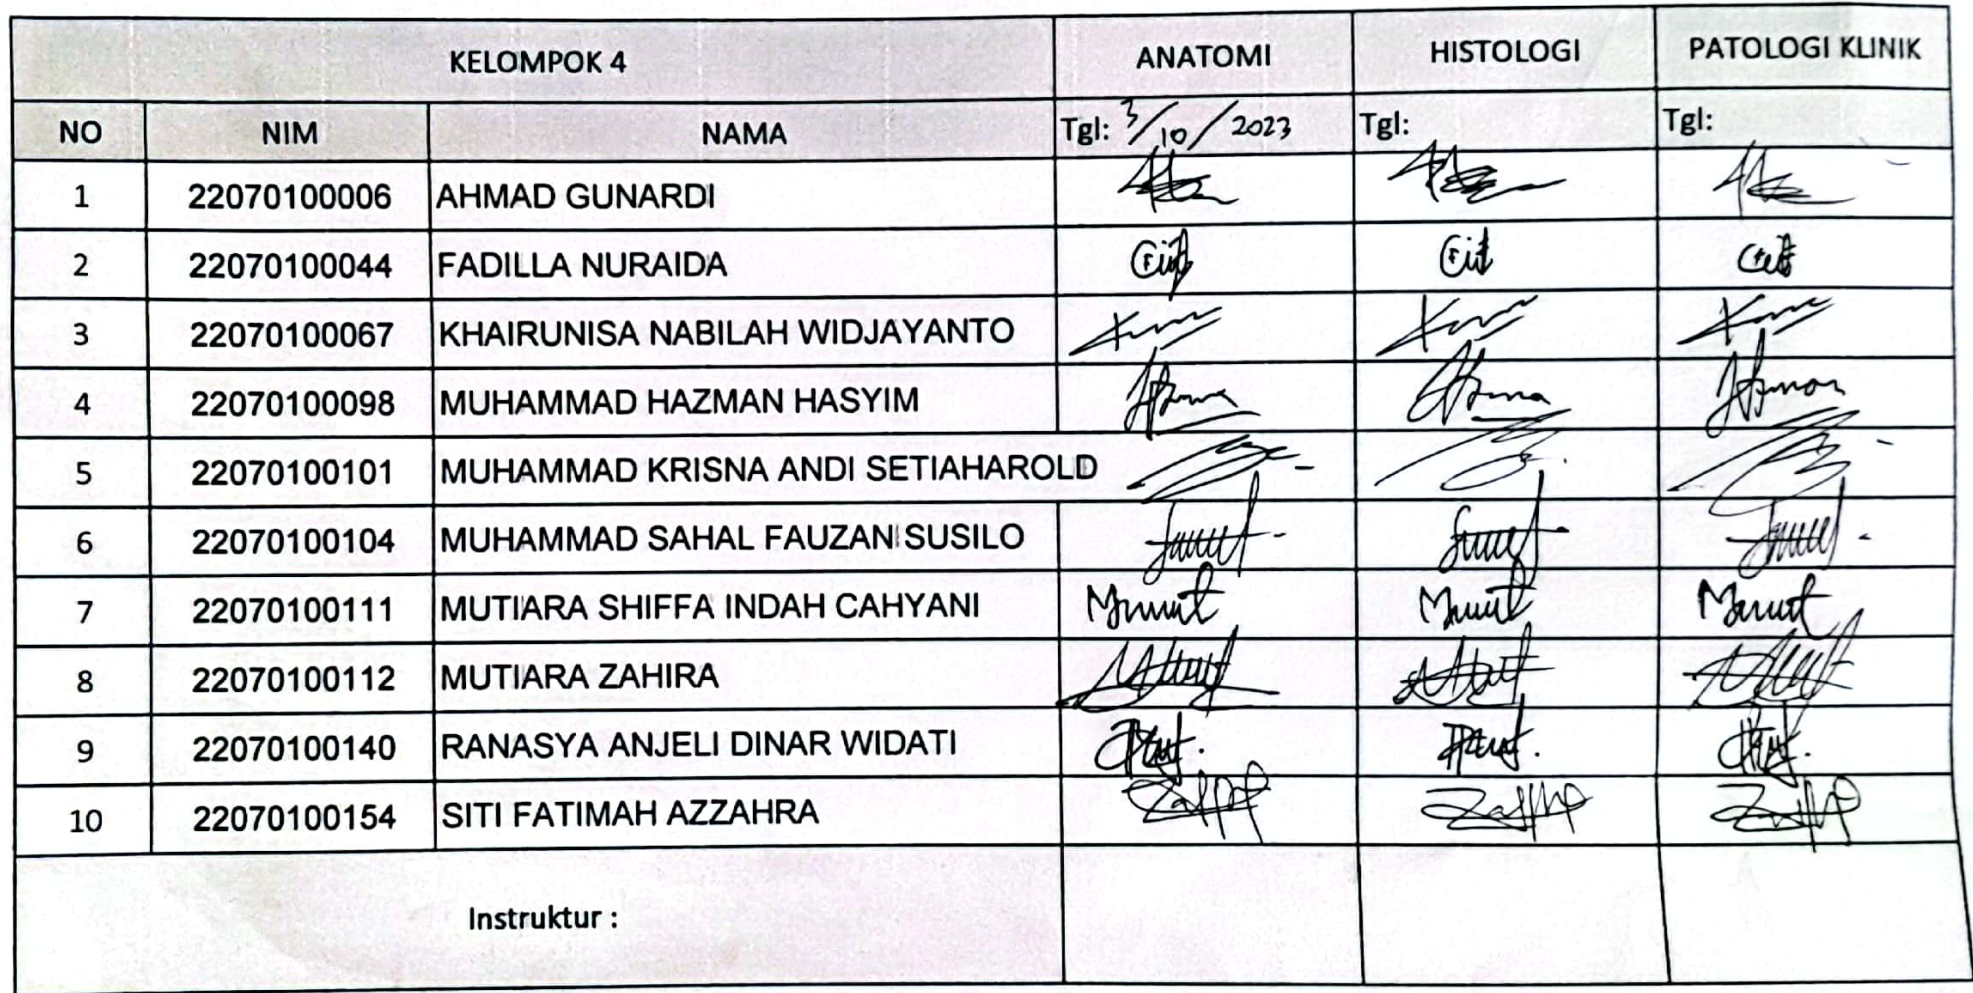 KELOMPOK 4 ANATOMI HISTOLOGI PATOLOGI KLINIK
NO NIM NAMA Tgl: 3/10/2023 Tgl: Tgl:
1 22070100006 AHMAD GUNARDI
2 22070100044 FADILLA NURAIDA
3 22070100067 KHAIRUNISA NABILAH WIDJAYANTO
4 22070100098 MUHAMMAD HAZMAN HASYIM
5 22070100101 MUHAMMAD KRISNA ANDI SETIAHAROLD
6 22070100104 MUHAMMAD SAHAL FAUZANI SUSILO
7 22070100111 MUTIARA SHIFFA INDAH CAHYANI
8 22070100112 MUTIARA ZAHIRA
9 22070100140 RANASYA ANJELI DINAR WIDATI
10 22070100154 SITI FATIMAH AZZAHRA
Instruktur :